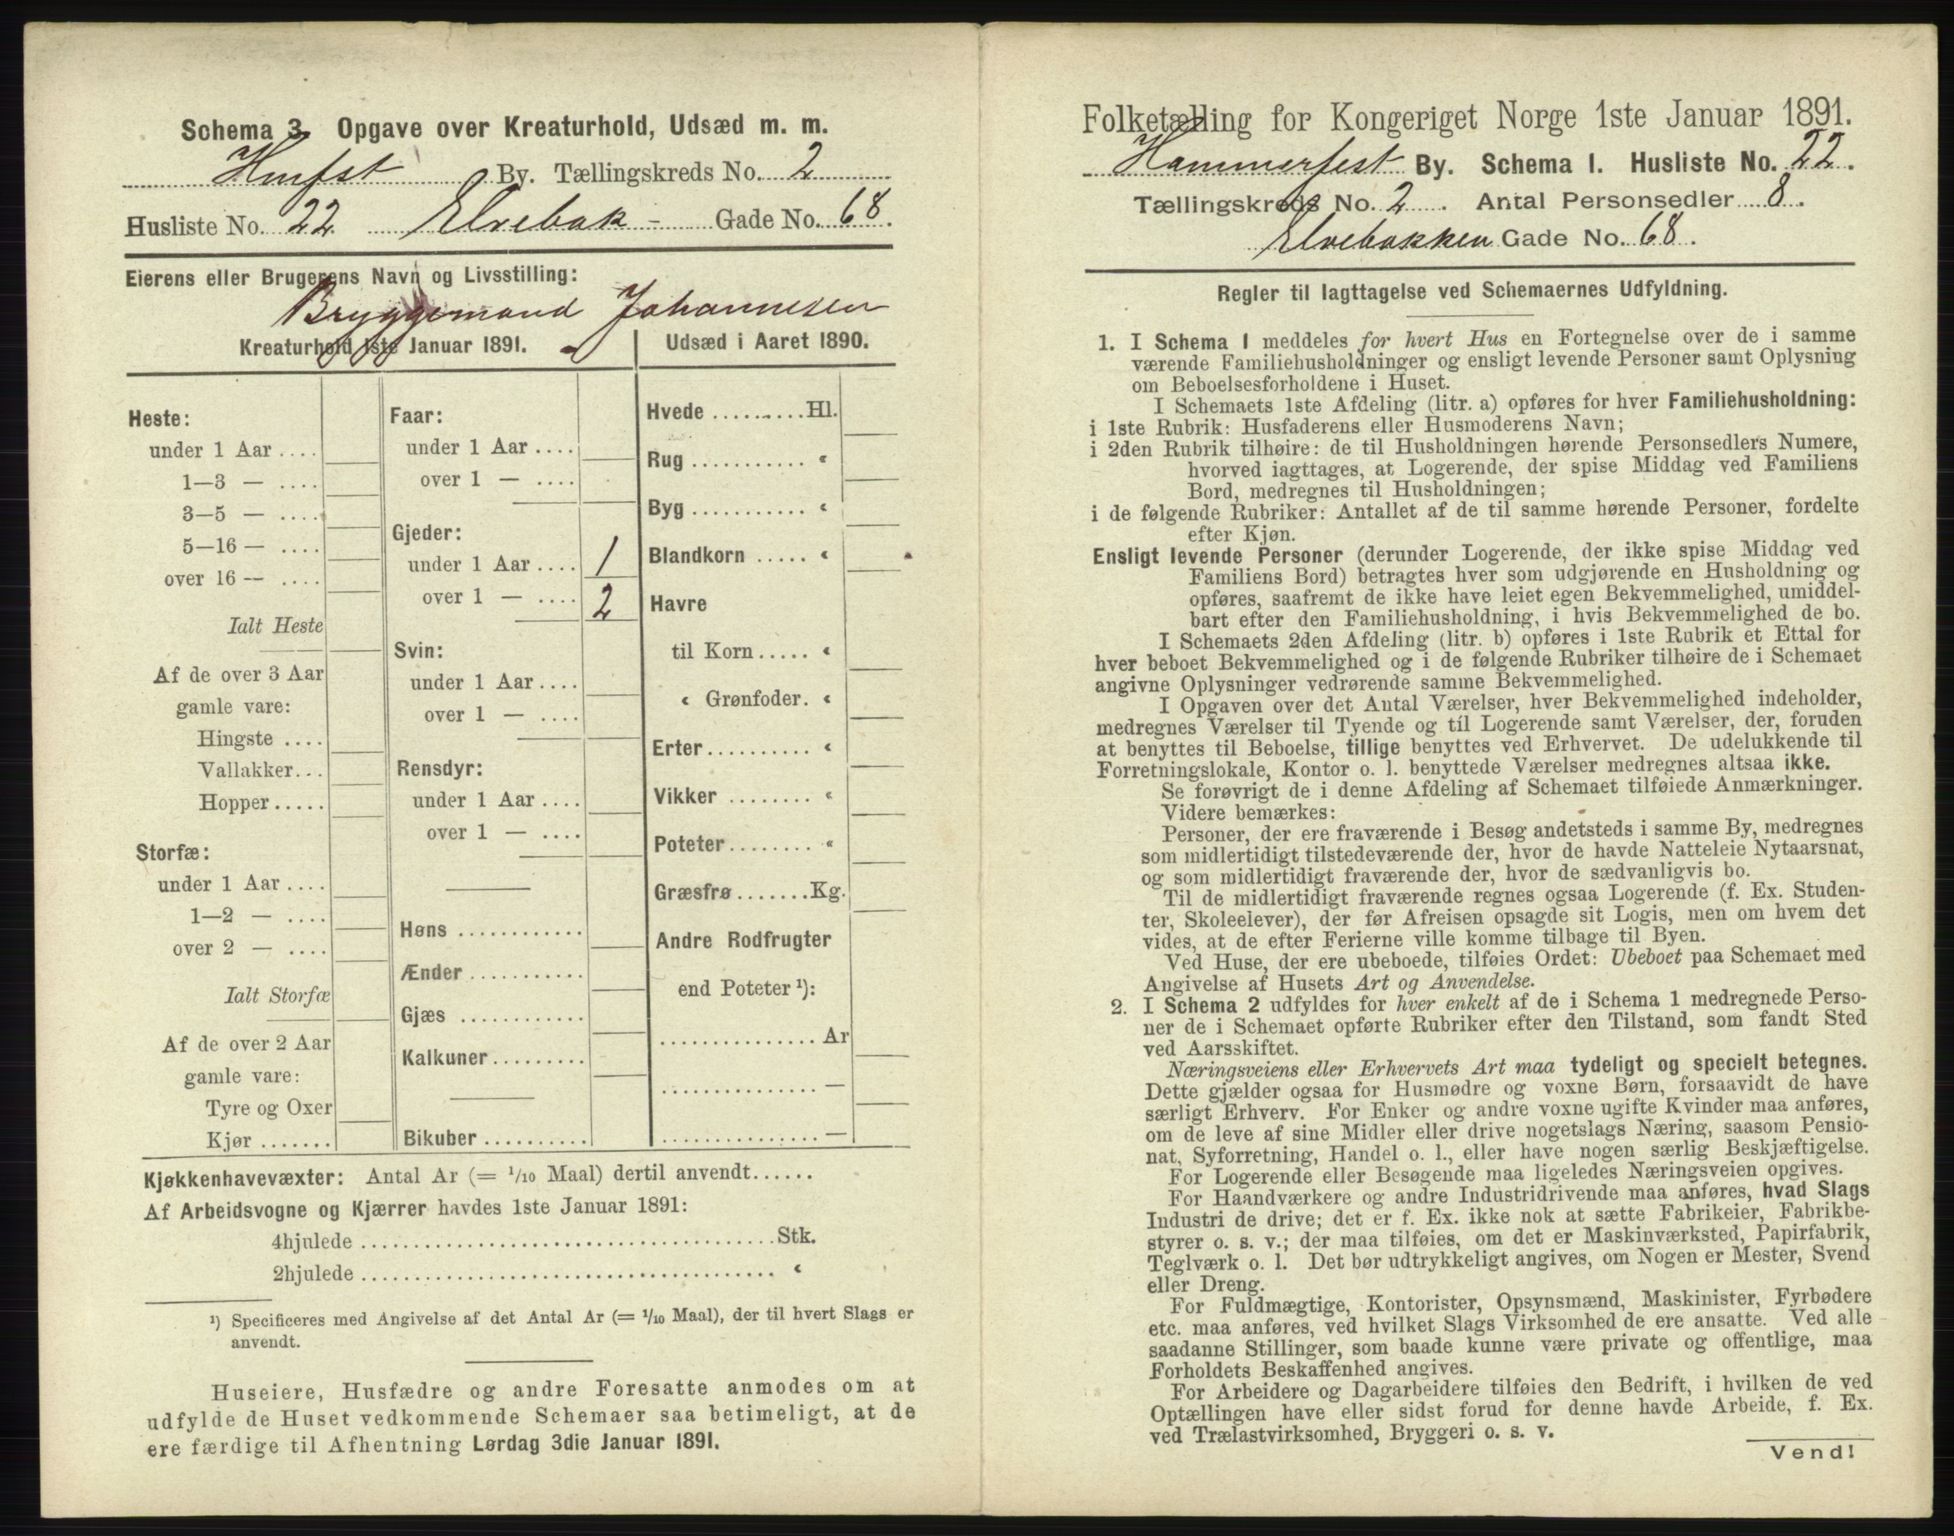 Schema 3. Opgave over Kreaturhold, Udsæd m. m.
Hmfst By. Tællingskreds No. 2
Husliste No. 22 Elvebak- Gade No. 68.
Eierens eller Brugerens Navn og Livsstilling:
Bryggemand Johannesen
Kreaturhold 1ste Januar 1891.
Heste:
under 1 Aar ....
1—3 — ....
3—5 — ....
5—16 — ....
over 16 — ....
Ialt Heste
Af de over 3 Aar
gamle vare:
Hingste ....
Vallakker...
Hopper.....
Storfæ:
under 1 Aar ....
1—2 — ....
over 2 — ....
Ialt Storfæ
Af de over 2 Aar
gamle vare:
Tyre og Oxer
Kjør .......
Faar:
under 1 Aar ....
over 1 — ....
Gjeder:
under 1 Aar .... 1
over 1 — .... 2
Svin:
under 1 Aar ....
over 1 — ....
Rensdyr:
under 1 Aar ....
over 1 — ....
Høns ............
Ænder ...........
Gjæs ............
Kalkuner .........
Bikuber ..........
Udsæd i Aaret 1890.
Hvede ......... Hl.
Rug ........... “
Byg ........... “
Blandkorn ..... “
Havre
til Korn ..... “
“ Grønfoder. “
Erter .......... “
Vikker ........ “
Poteter ........ “
Græsfrø ....... Kg.
Andre Rodfrugter
end Poteter ¹):
............... Ar
............... —
............... —
Kjøkkenhavevæxter: Antal Ar (= 1/10 Maal) dertil anvendt......
Af Arbeidsvogne og Kjærrer havdes 1ste Januar 1891:
4hjulede ........................................ Stk.
2hjulede ........................................ “
¹) Specificeres med Angivelse af det Antal Ar (= 1/10 Maal), der til hvert Slags er
anvendt.
Huseiere, Husfædre og andre Foresatte anmodes om at
udfylde de Huset vedkommende Schemaer saa betimeligt, at de
ere færdige til Afhentning Lørdag 3die Januar 1891.
Folketælling for Kongeriget Norge 1ste Januar 1891.
Hammerfest By. Schema I. Husliste No. 22.
Tællingskreds No. 2. Antal Personsedler 8.
Elvebakken Gade No. 68.
Regler til Iagttagelse ved Schemaernes Udfyldning.
1. I Schema I meddeles for hvert Hus en Fortegnelse over de i samme
værende Familiehusholdninger og ensligt levende Personer samt Oplysning
om Beboelsesforholdene i Huset.
I Schemaets 1ste Afdeling (litr. a) opføres for hver Familiehusholdning:
i 1ste Rubrik: Husfaderens eller Husmoderens Navn;
i 2den Rubrik tilhøire: de til Husholdningen hørende Personsedlers Numere,
hvorved iagttages, at Logerende, der spise Middag ved Familiens
Bord, medregnes til Husholdningen;
i de følgende Rubriker: Antallet af de til samme hørende Personer, fordelte
efter Kjøn.
Ensligt levende Personer (derunder Logerende, der ikke spise Middag ved
Familiens Bord) betragtes hver som udgjørende en Husholdning og
opføres, saafremt de ikke have leiet egen Bekvemmelighed, umiddel-
bart efter den Familiehusholdning, i hvis Bekvemmelighed de bo.
I Schemaets 2den Afdeling (litr. b) opføres i 1ste Rubrik et Ettal for
hver beboet Bekvemmelighed og i de følgende Rubriker tilhøire de i Schemaet
angivne Oplysninger vedrørende samme Bekvemmelighed.
I Opgaven over det Antal Værelser, hver Bekvemmelighed indeholder,
medregnes Værelser til Tyende og til Logerende samt Værelser, der, foruden
at benyttes til Beboelse, tillige benyttes ved Erhvervet. De udelukkende til
Forretningslokale, Kontor o. l. benyttede Værelser medregnes altsaa ikke.
Se forøvrigt de i denne Afdeling af Schemaet tilføiede Anmærkninger.
Videre bemærkes:
Personer, der ere fraværende i Besøg andetsteds i samme By, medregnes
som midlertidigt tilstedeværende der, hvor de havde Natteleie Nytaarsnat,
og som midlertidigt fraværende der, hvor de sædvanligvis bo.
Til de midlertidigt fraværende regnes ogsaa Logerende (f. Ex. Studen-
ter, Skoleelever), der før Afreisen opsagde sit Logis, men om hvem det
vides, at de efter Ferierne ville komme tilbage til Byen.
Ved Huse, der ere ubeboede, tilføies Ordet: Ubeboet paa Schemaet med
Angivelse af Husets Art og Anvendelse.
2. I Schema 2 udfyldes for hver enkelt af de i Schema 1 medregnede Perso-
ner de i Schemaet opførte Rubriker efter den Tilstand, som fandt Sted
ved Aarsskiftet.
Næringsveiens eller Erhvervets Art maa tydeligt og specielt betegnes.
Dette gjælder ogsaa for Husmødre og voxne Børn, forsaavidt de have
særligt Erhverv. For Enker og andre voxne ugifte Kvinder maa anføres,
om de leve af sine Midler eller drive nogetslags Næring, saasom Pensio-
nat, Syforretning, Handel o. l., eller have nogen særlig Beskjæftigelse.
For Logerende eller Besøgende maa ligeledes Næringsveien opgives.
For Haandværkere og andre Industridrivende maa anføres, hvad Slags
Industri de drive; det er f. Ex. ikke nok at sætte Fabrikeier, Fabrikbe-
styrer o. s. v.; der maa tilføies, om det er Maskinværksted, Papirfabrik,
Teglværk o. l. Det bør udtrykkeligt angives, om Nogen er Mester, Svend
eller Dreng.
For Fuldmægtige, Kontorister, Opsynsmænd, Maskinister, Fyrbødere
etc. maa anføres, ved hvilket Slags Virksomhed de ere ansatte. Ved alle
saadanne Stillinger, som baade kunne være private og offentlige, maa
Forholdets Beskaffenhed angives.
For Arbeidere og Dagarbeidere tilføies den Bedrift, i hvilken de ved
Optællingen have eller sidst forud for denne havde Arbeide, f. Ex.
ved Trælastvirksomhed, Bryggeri o. s. v.
Vend!